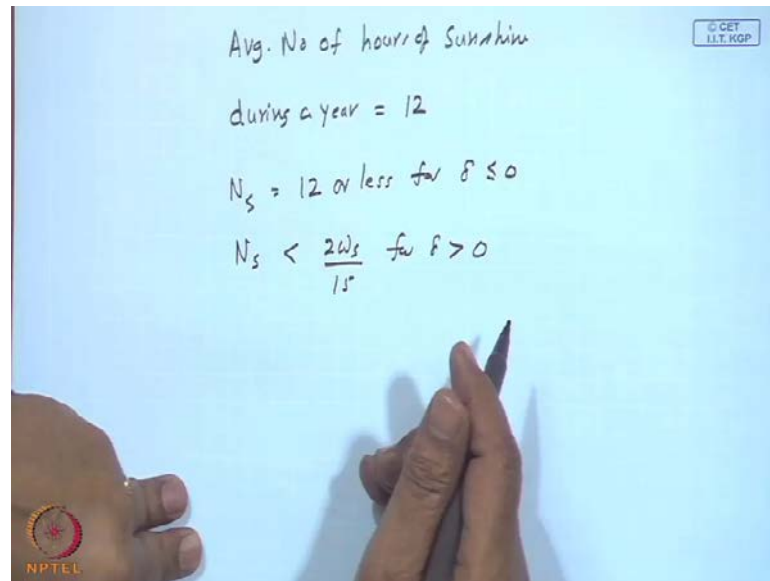 © CET
I.I.T. KGP
Avg. No of hours of Sunshine
during a year = 12
Ns = 12 or less for δ ≤ 0
Ns < 2ωs/15 for δ > 0
NPTEL